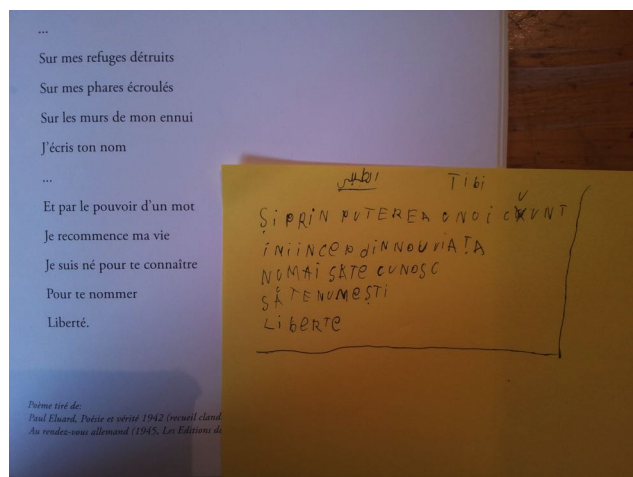 ...
Sur mes refuges détruits
Sur mes phares écroulés
Sur les murs de mon ennui
J'écris ton nom
...
Et par le pouvoir d'un mot
Je recommence ma vie
Je suis né pour te connaître
Pour te nommer
Liberté.
Poème tiré de:
Paul Eluard, Poésie et vérité 1942 (recueil cland
Au rendez-vous allemand (1945, Les Editions de
Tibi
ȘI PRIN PUTEREA UNOI CUVUNT
IMIINCEP dINNOU VIAȚA
NUMAI SĂTE CUNOSC
SĂ TENUMEȘTI
LibERTE